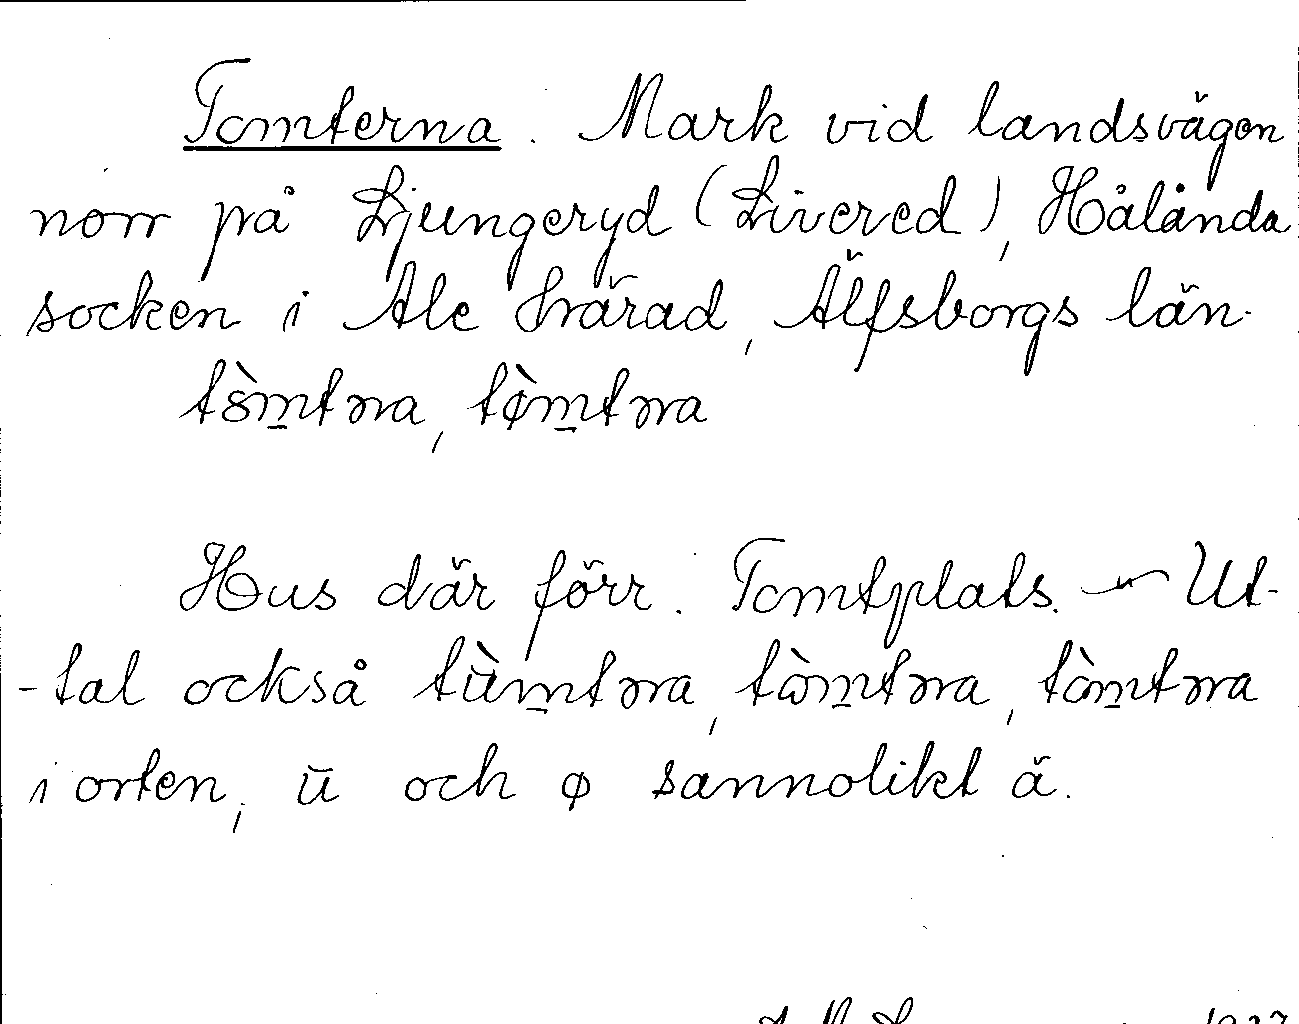 Tomterna. Mark vid landsvägen
norr på Ljungeryd (Livered), Hålanda
socken i Ale härad, Älfsborgs län.
tòm̲təra, tø̀m̲təra
Hus där förr. Tomtplats. — Ut-
-tal också tùm̲təra, tòm̲təra, tòm̲təra
i orten, ū och φ sannolikt ä.